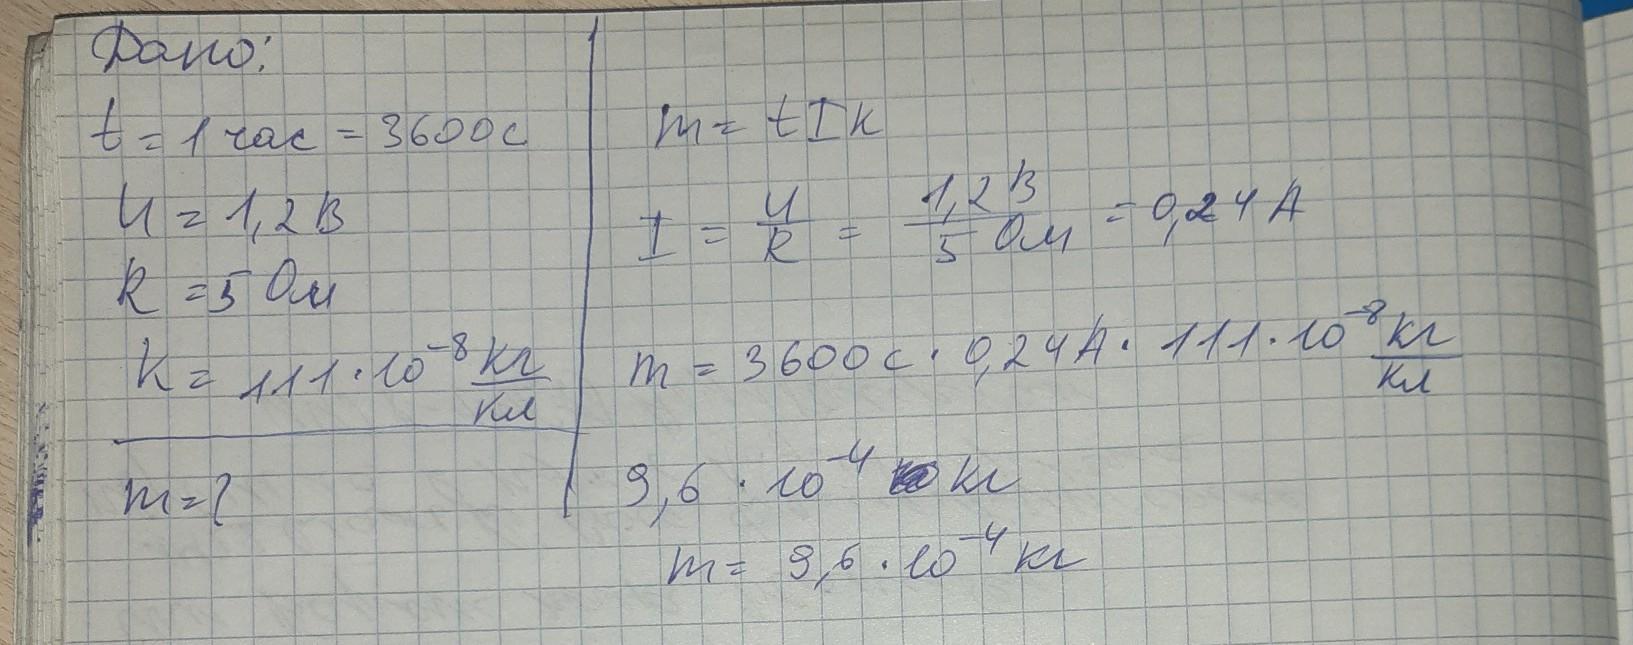 Дано:
t = 1 час = 3600 с
U = 1,2 В
R = 5 Ом
k = 111 · 10⁻⁸ кг/кл
m = ?
m = t I k
I = U/R = 1,2 В/5 Ом = 0,24 А
m = 3600 с · 0,24 А · 111 · 10⁻⁸ кг/кл
9,6 · 10⁻⁴ кг
m = 9,6 · 10⁻⁴ кг